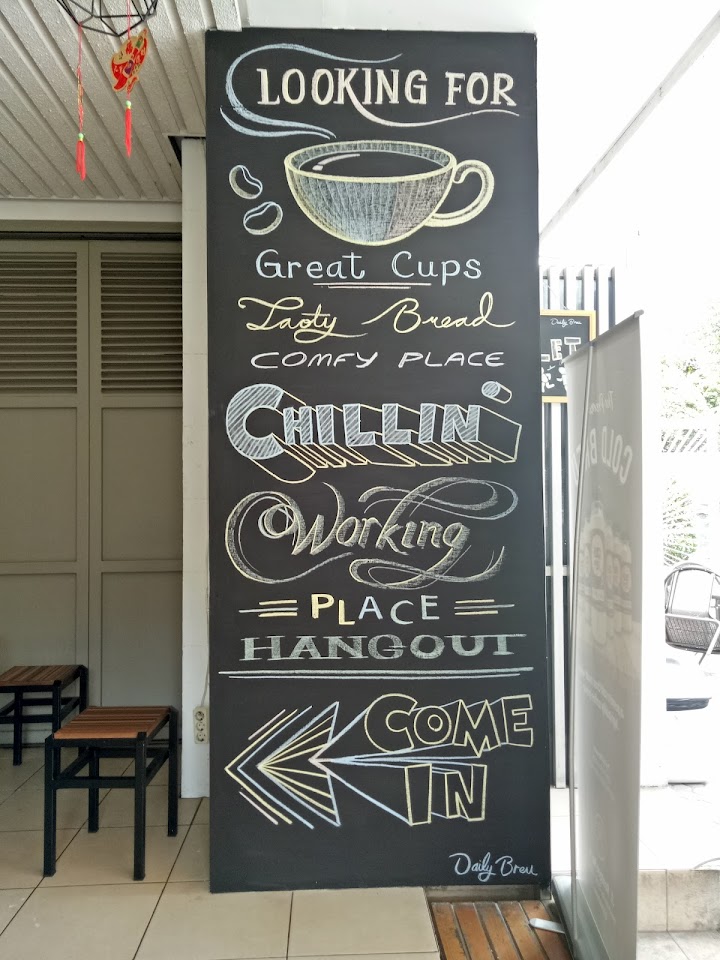 LOOKING FOR
Great Cups
Tasty Bread
COMFY PLACE
CHILLIN'
Working
PLACE
HANGOUT
COME
IN
Daily Breu
Daily Breu
LET
COLD B